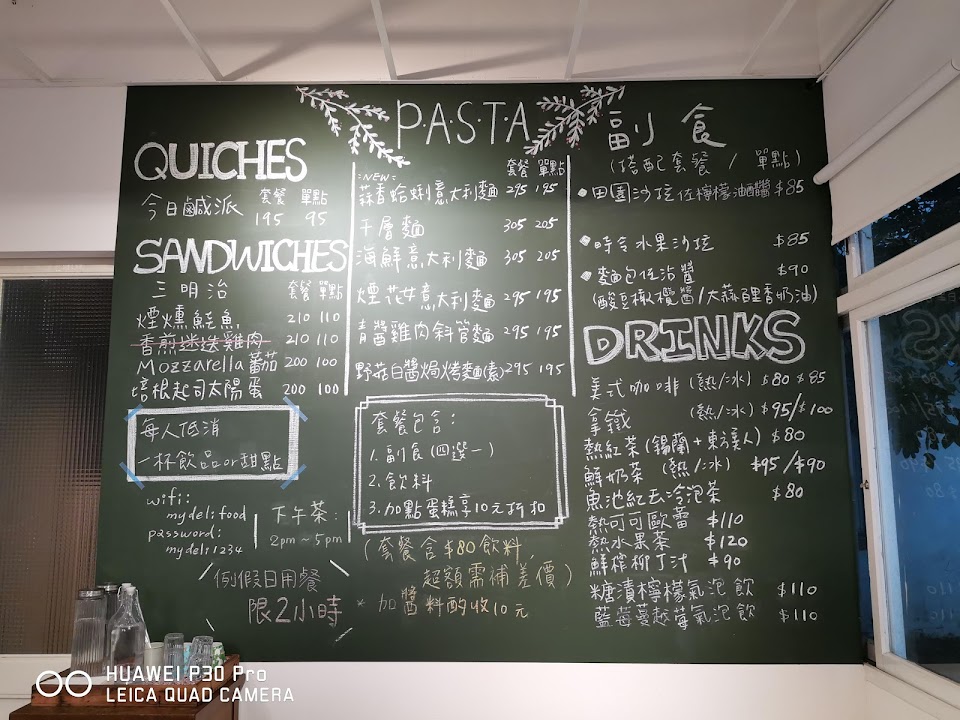 QUICHES
套餐 單點
今日鹹派 195 95
SANDWICHES
三明治 套餐 單點
煙燻鮭魚 210 110
香煎迷迭雞肉 210 110
Mozzarella蕃茄 200 100
培根起司太陽蛋 200 100
每人低消
一杯飲品or甜點
wifi:
mydelifood
password:
mydeli1234
下午茶:
2pm~5pm
例假日用餐
限2小時
P·A·S·T·A
套餐 單點
:NEW:
蒜香蛤蜊意大利麵 295 195
千層麵 305 205
海鮮意大利麵 305 205
煙花女意大利麵 295 195
青醬雞肉斜管麵 295 195
野菇白醬焗烤麵(素) 295 195
套餐包含:
1. 副食(四選一)
2. 飲料
3. 加點蛋糕享10元折扣
(套餐含$80飲料,
超額需補差價)
* 加醬料酌收10元
副食
(搭配套餐/單點)
田園沙拉佐檸檬油醋醬 $85
時令水果沙拉 $85
麵包佐沾醬 $90
(酸豆橄欖醬/大蒜迷香奶油)
DRINKS
美式咖啡 (熱/冰) $80 $85
拿鐵 (熱/冰) $95/$100
熱紅茶(錫蘭+東方美人) $80
鮮奶茶 (熱/冰) $95/$90
魚池紅玉冷泡茶 $80
熱可可歐蕾 $110
熱水果茶 $120
鮮榨柳丁汁 $90
糖漬檸檬氣泡飲 $110
藍莓蔓越莓氣泡飲 $110
HUAWEI P30 Pro
LEICA QUAD CAMERA